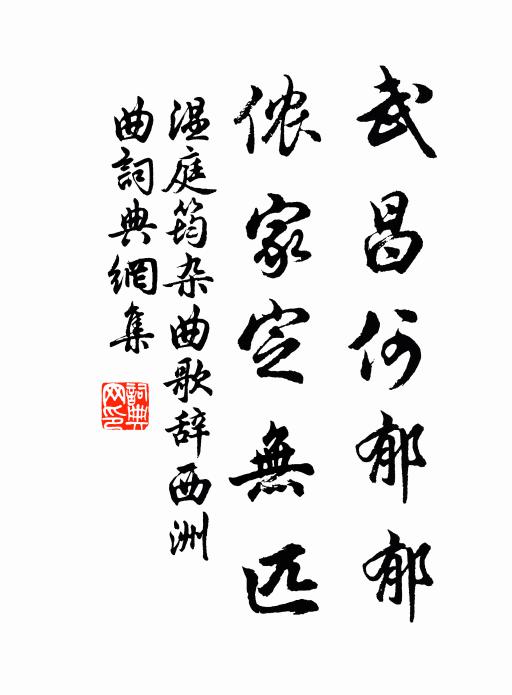 武昌何郁郁
侬家定無匹
温庭筠杂曲歌辞西洲
曲詞典網集
詞典
网印